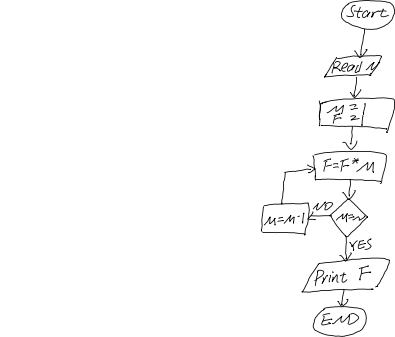 Start
Read M
M = 1
F = 1
F=F*M
NO
M=M-1
YES
Print F
END